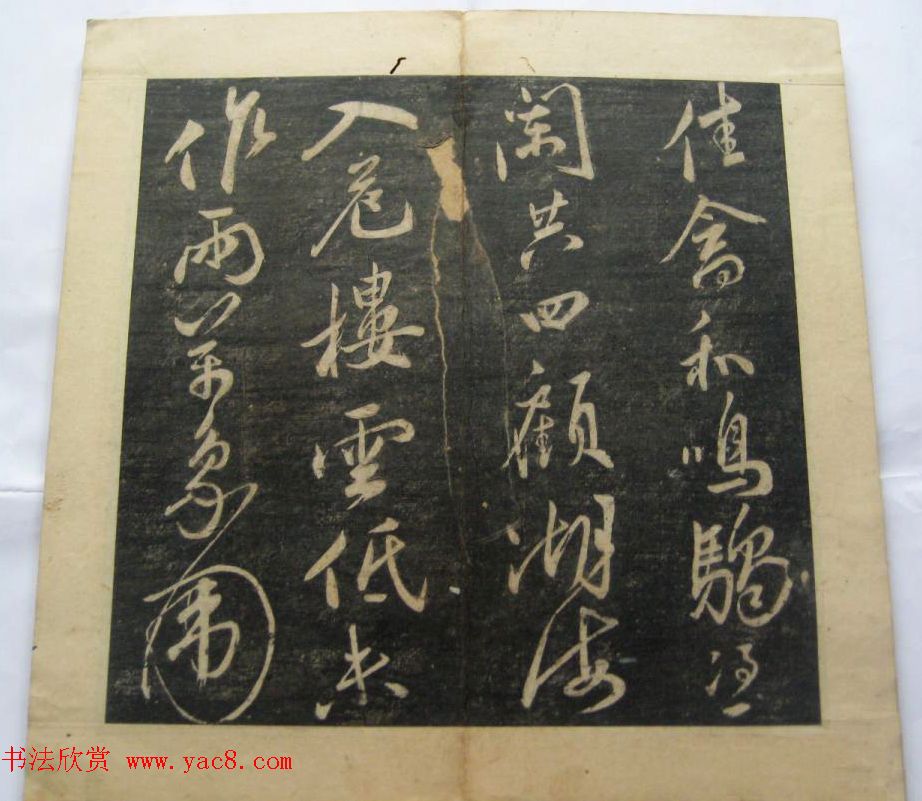 佳禽和鳴騶憑
闌共四顧湖海
入危樓雲低未
作雨萬象圍
书法欣赏 www.yac8.com